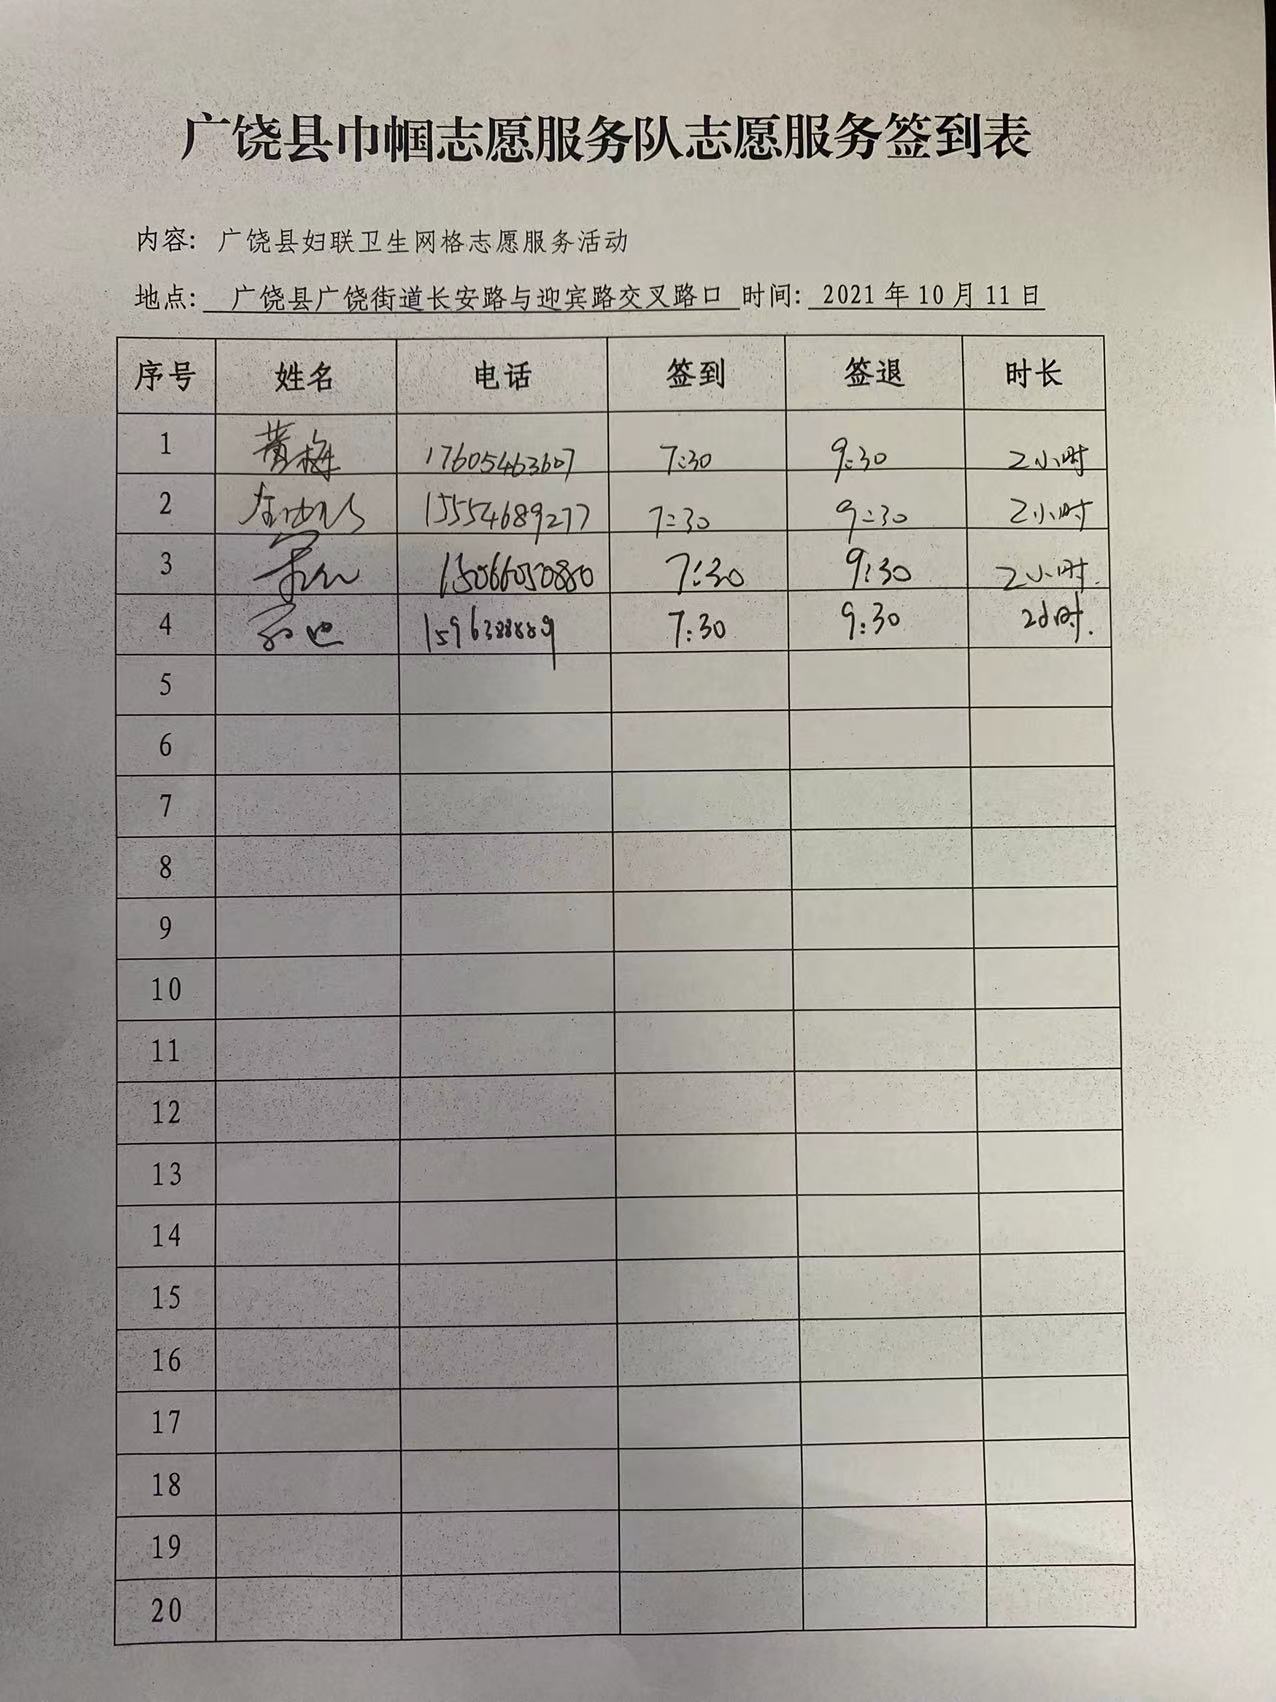 广饶县巾帼志愿服务队志愿服务签到表
内容：广饶县妇联卫生网格志愿服务活动
地点：广饶县广饶街道长安路与迎宾路交叉路口 时间：2021年10月11日
序号 姓名 电话 签到 签退 时长
1 黄梅 17605463607 7:30 9:30 2小时
2 15554689277 7:30 9:30 2小时
3 15066050880 7:30 9:30 2小时.
4 7:30 9:30 2小时.
5
6
7
8
9
10
11
12
13
14
15
16
17
18
19
20